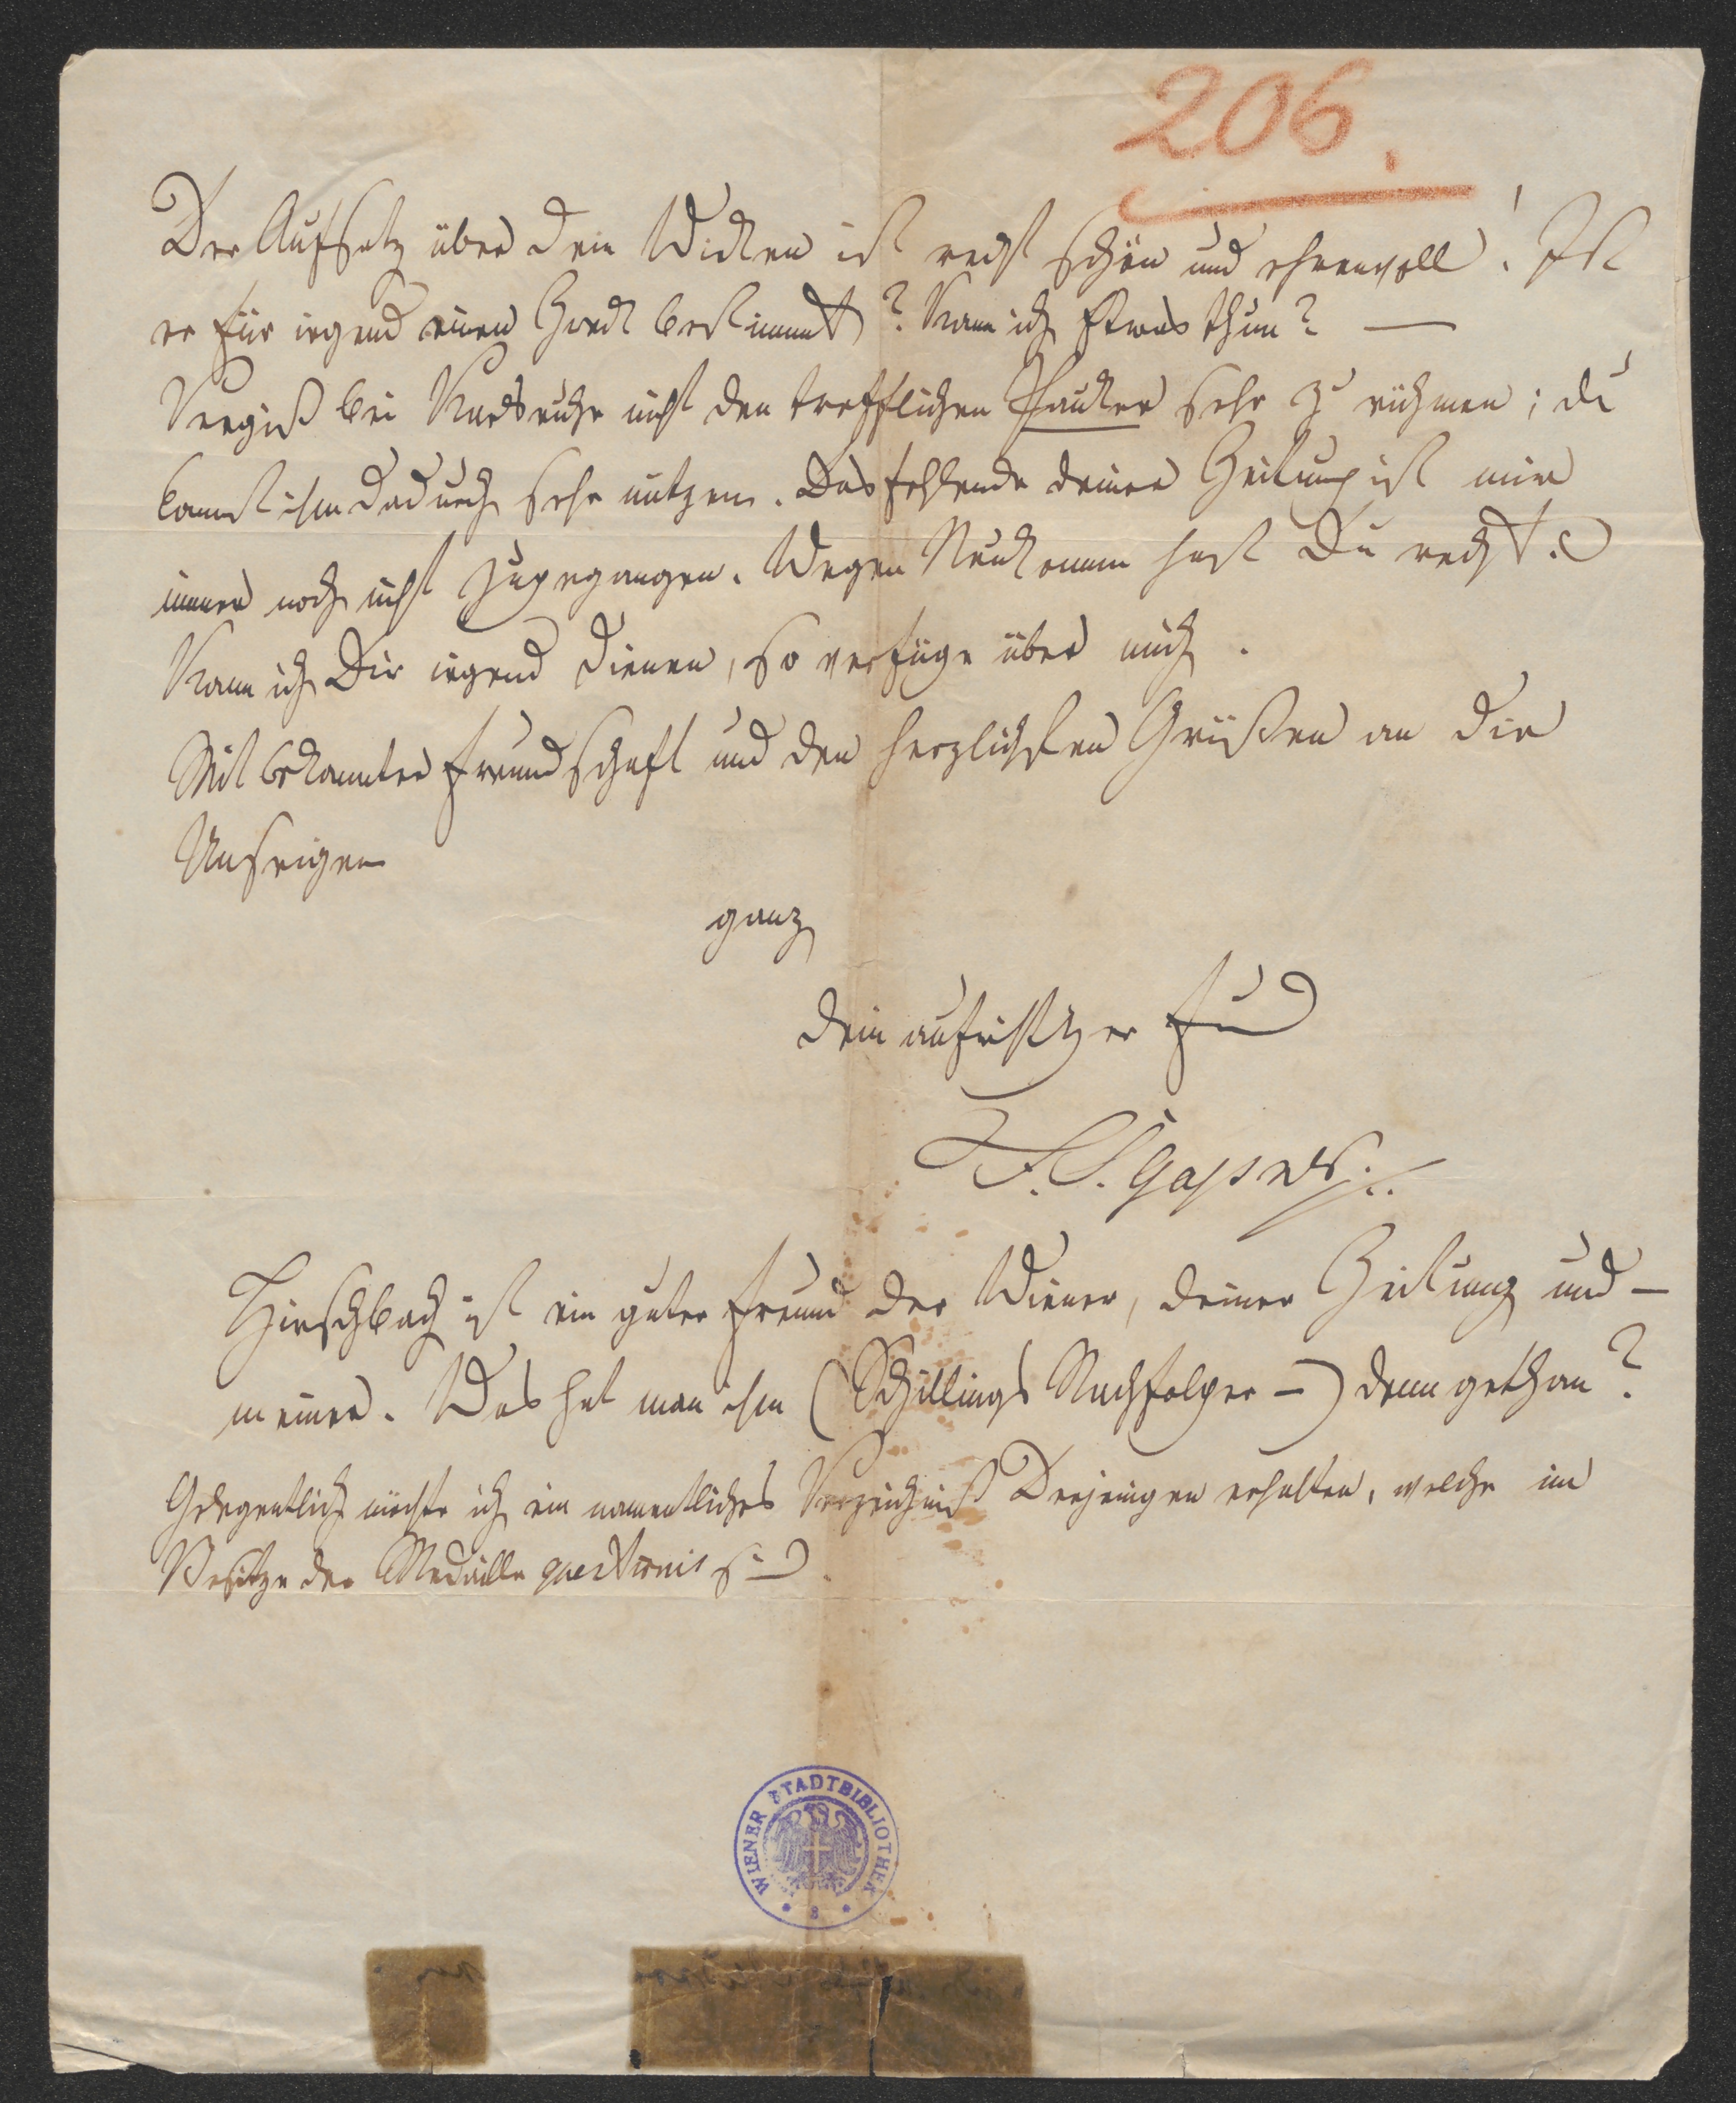 206.
Der Aufsatz über dein Wirken ist recht schön und ehrenvoll! Ist
er für irgend einen Zweck bestimmt? Kann ich Etwas thun? —
Vergiß bei Karlsruhe nicht den trefflichen Haußer sehr zu rühmen; du
kannst ihm dadurch sehr nützen. Das fehlende deiner Zeitung ist mir
immer noch nicht zugegangen. Wegen Neukomm hast Du recht.
Kann ich Dir irgend dienen, so verfüge über mich.
Mit bekannter Freundschaft und den herzlichsten Grüßen an die
Unsrigen
ganz
dein aufrichtiger
F. S. Gassner
Hirschbach ist ein guter Freund der Wiener, deiner Zeitung und —
meiner. Was hat man ihm (Schillings Nachfolger —) denn gethan?
Gelegentlich möchte ich ein namentliches Verzeichniß Derjenigen erhalten, welche im
Besitze der Medaille quaestionis sind.
WIENER STADTBIBLIOTHEK